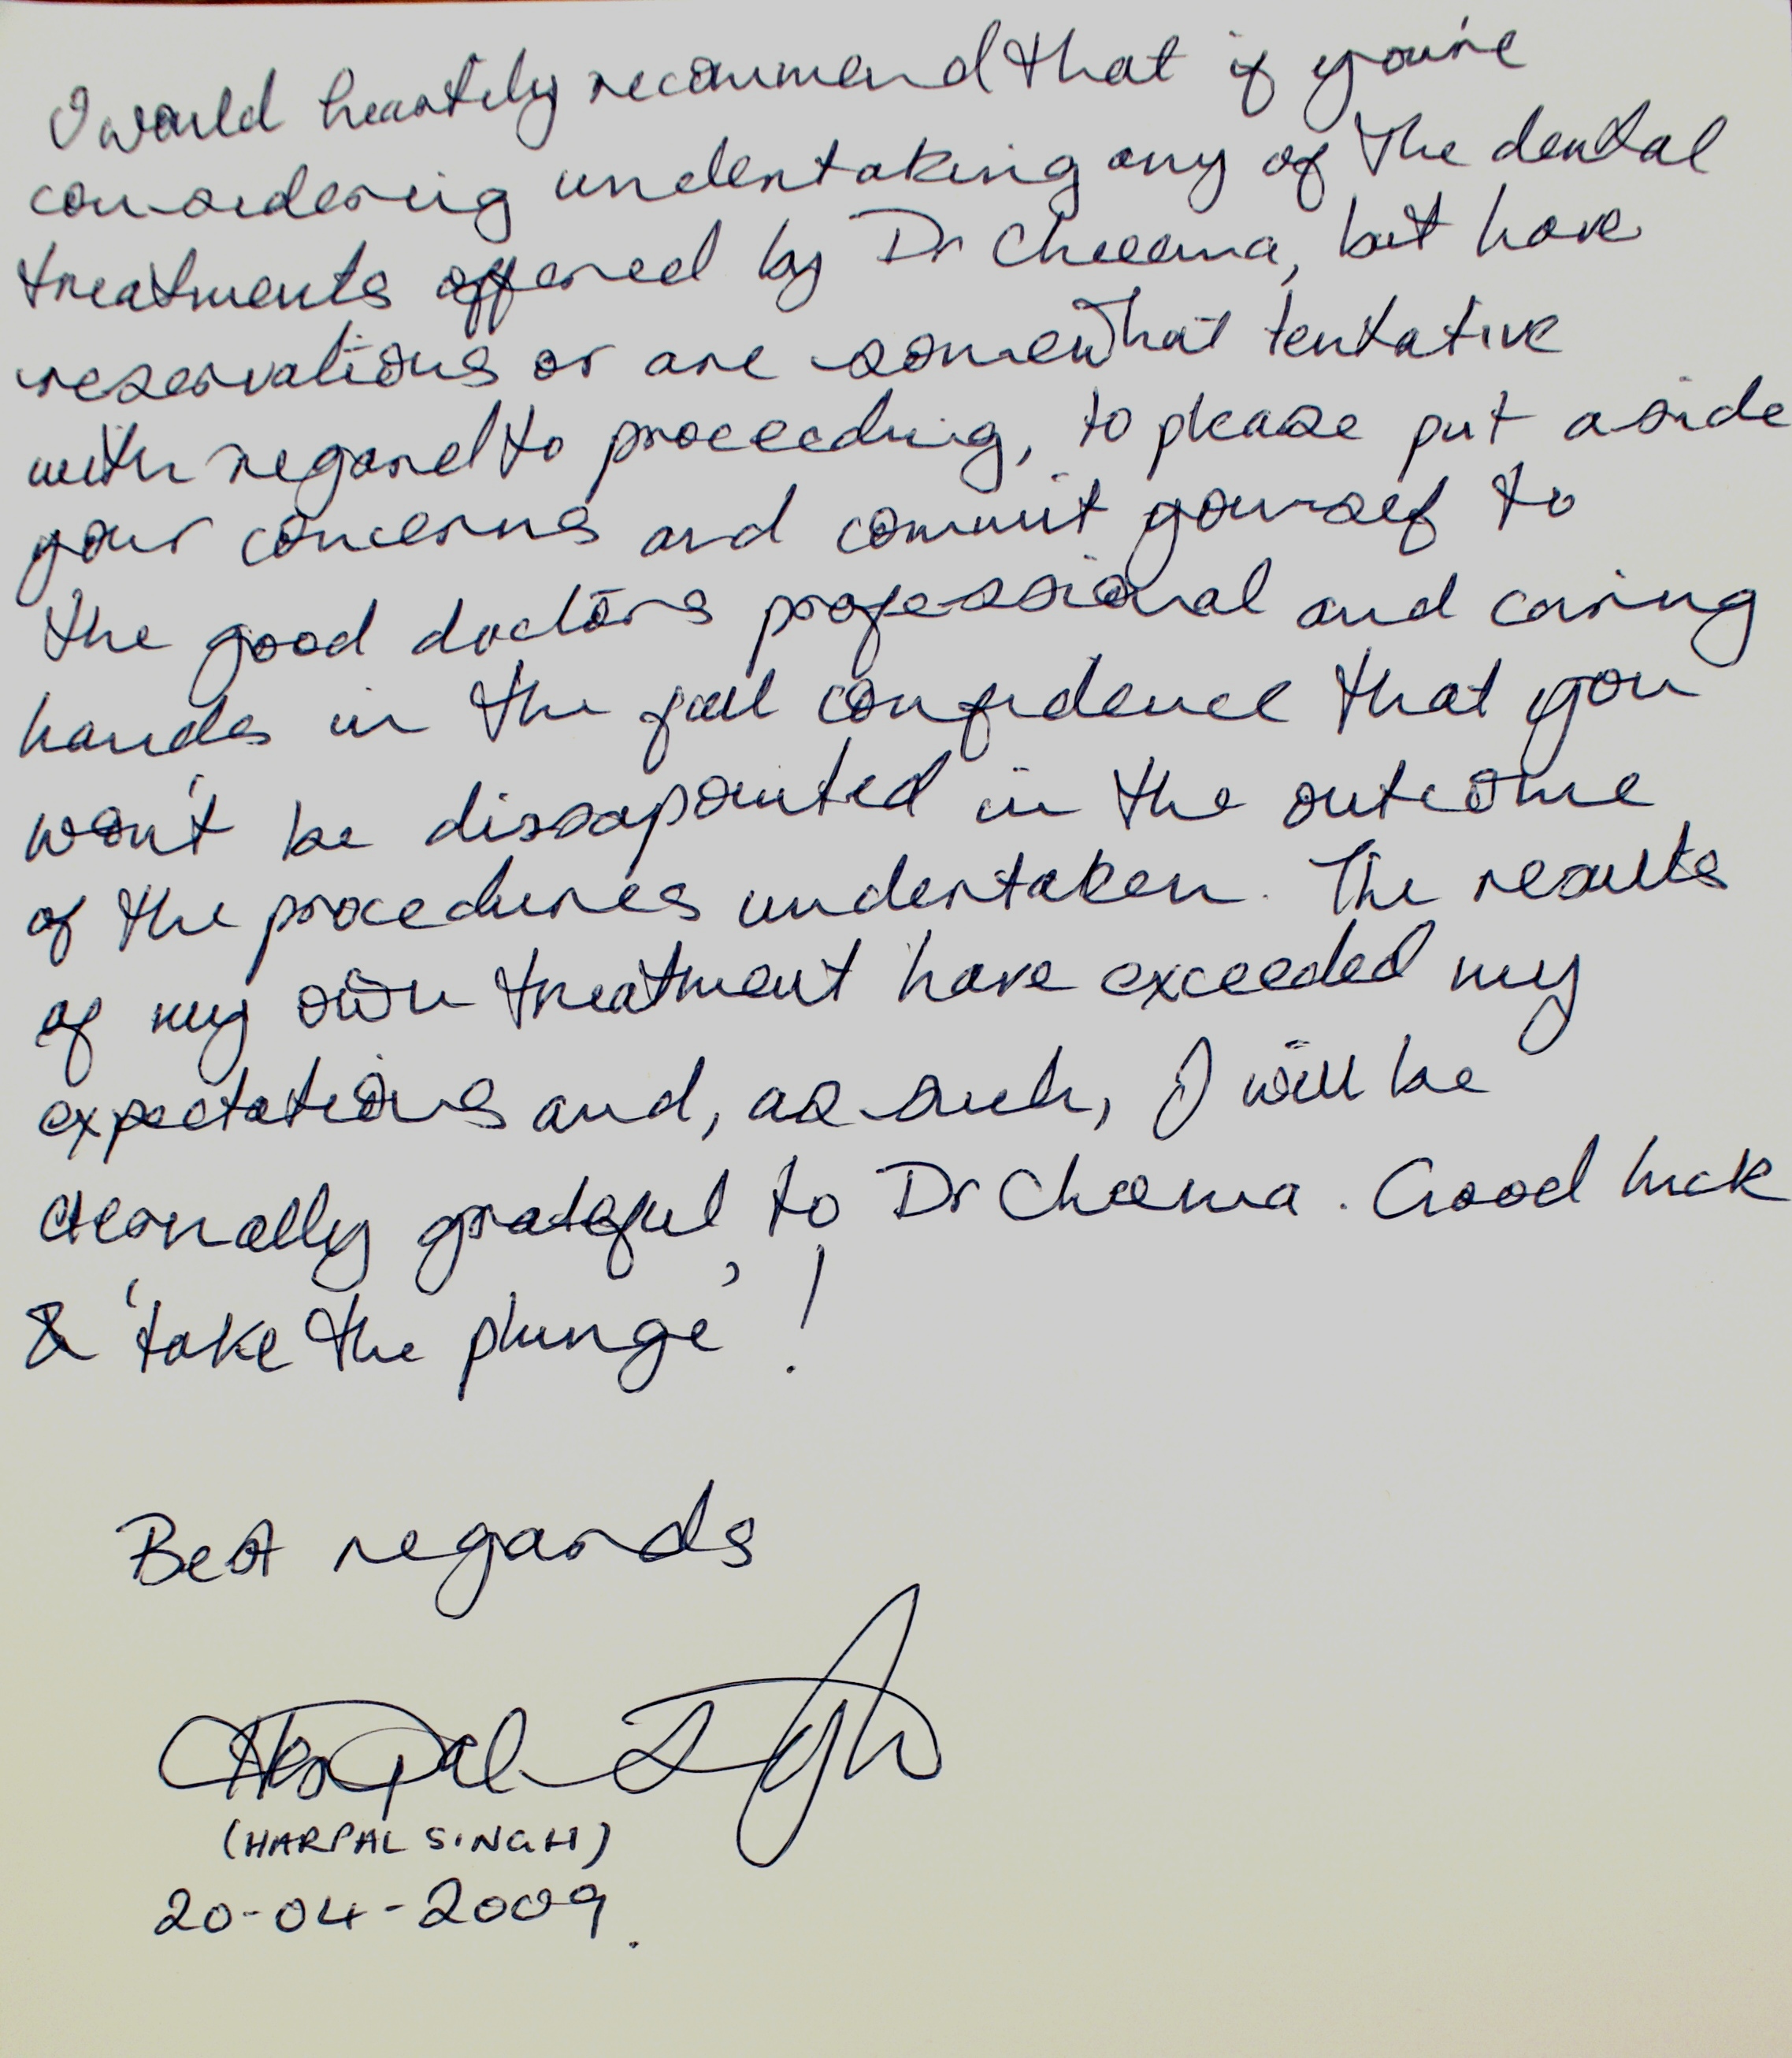 I would heartily recommend that if you're
considering undertaking any of the dental
treatments offered by Dr Cheema, but have
reservations or are somewhat tentative
with regard to proceeding, to please put aside
your concerns and commit yourself to
the good doctors professional and caring
hands in the full confidence that you
won't be dissapointed in the outcome
of the procedures undertaken. The results
of my own treatment have exceeded my
expectations and, as such, I will be
eternally grateful to Dr Cheema. Good luck
& 'take the plunge'!
Best regards
Harpal Singh
(HARPAL SINGH)
20-04-2009.